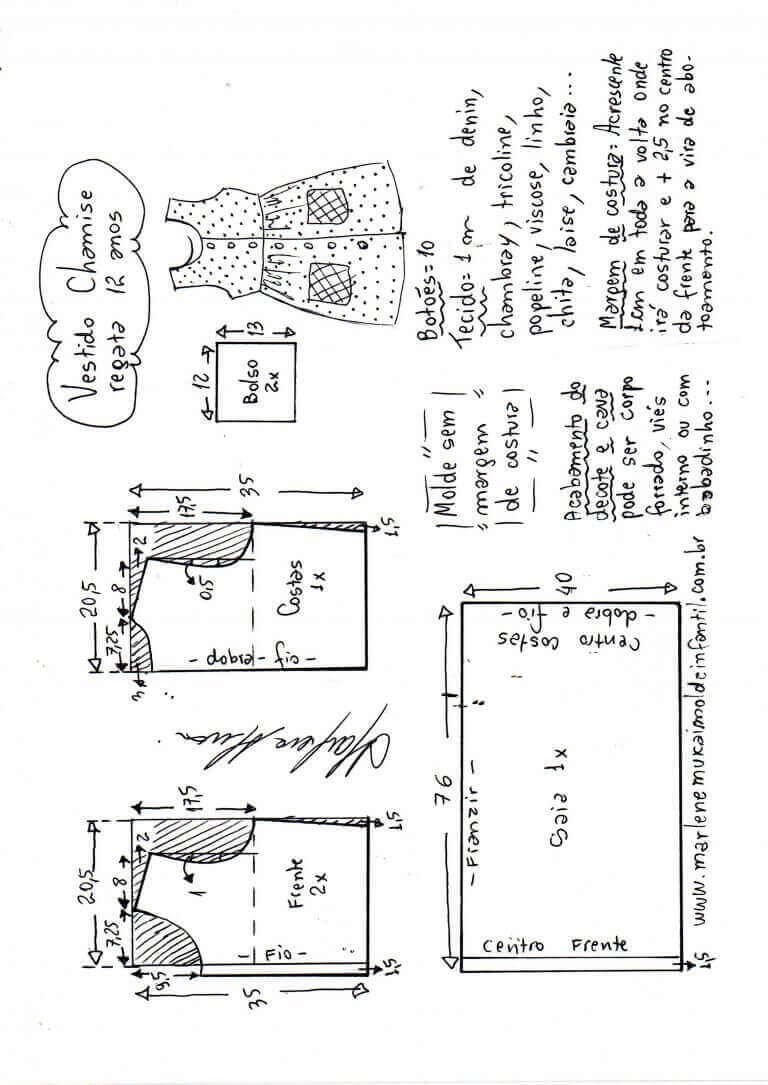 Vestido Chamise
regata 12 anos
12
13
Bolso
2x
Botões=10
Tecido= 1 m de denin,
chambray, tricoline,
popeline, viscose, linho,
chita, laise, cambraia...
Margem de costura: Acrescente
1cm em toda a volta onde
irá costurar e + 2,5 no centro
da frente para a vira de abo-
toamento.
20,5
7,25
8
2
3
17,5
35
0,5
Costas
1x
- fio - dobra -
1,5
Molde sem
margem
de costura
Acabamento do
decote e cava
pode ser corpo
forrado, viés
interno ou com
babadinho...
20,5
7,25
8
2
9,5
17,5
35
1
Frente
2x
- Fio -
1,5
76
40
- Franzir -
Saia 1x
Centro costas
- dobra e fio -
Centro Frente
1,5
www.marlenemukaimoldeinfantil.com.br